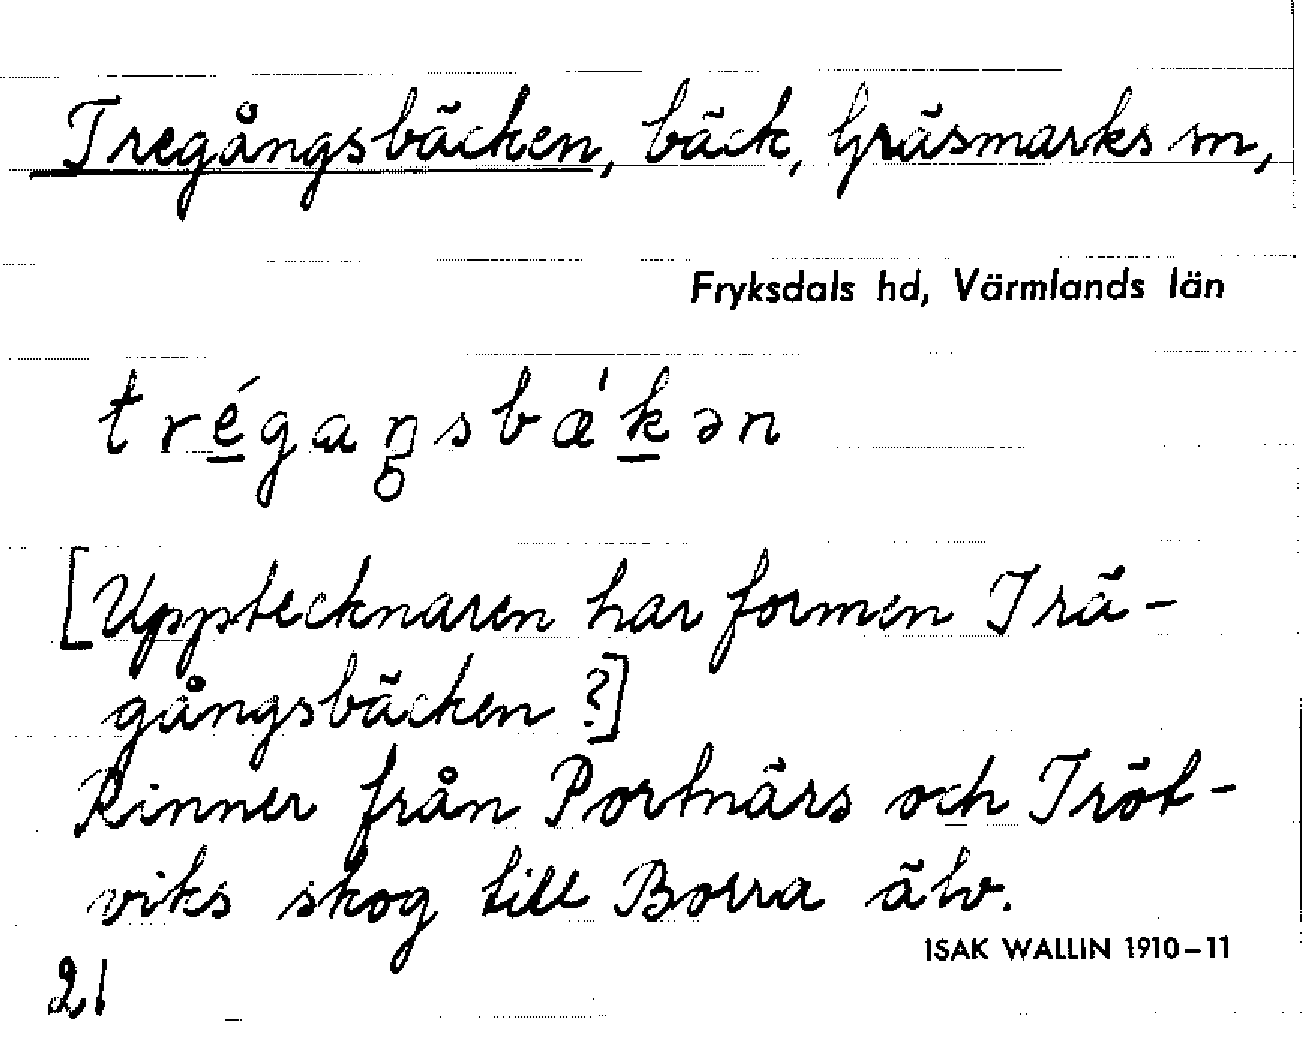 Tregångsbäcken, bäck, Gräsmarks sn,
Fryksdals hd, Värmlands län
trégaŋsbæ'kən
[Upptecknaren har formen Trä-
gångsbäcken ?]
Rinner från Portnärs och Tröt-
viks skog till Borra älv.
ISAK WALLIN 1910-11
21